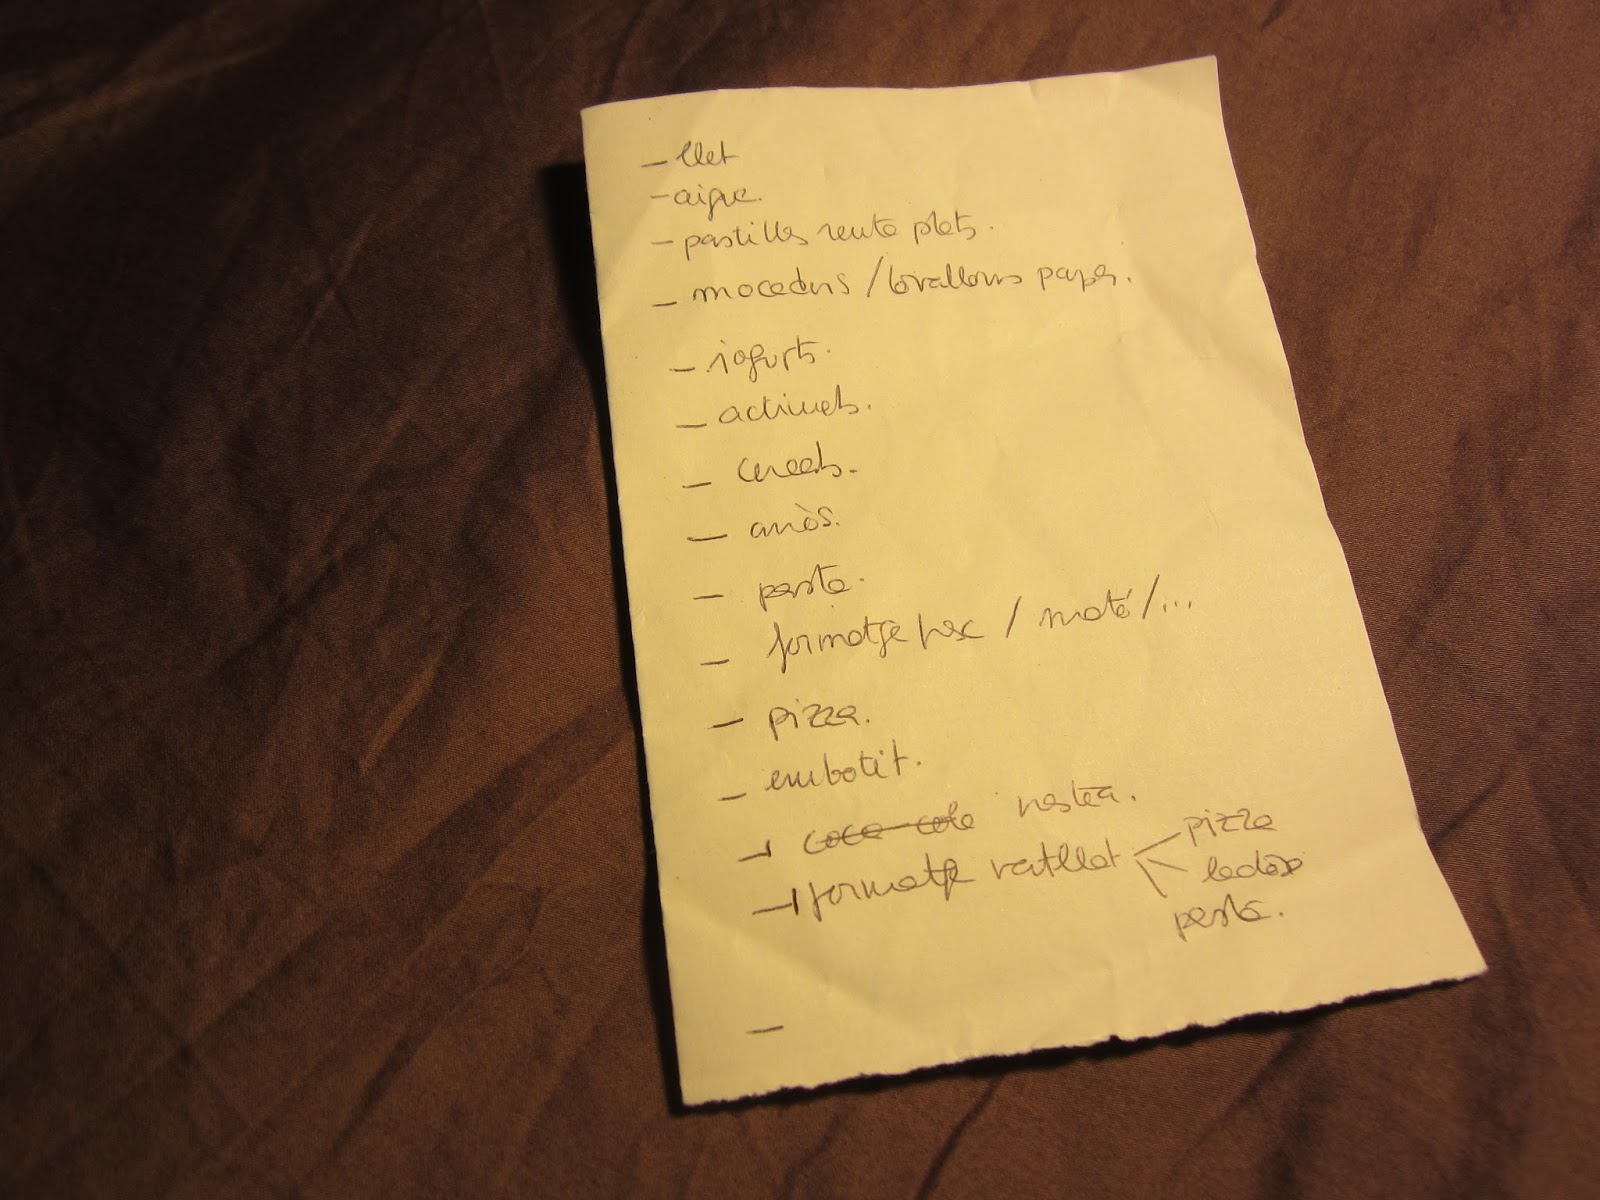 - llet
- aigua.
- pastilles renta plats.
- mocadors / tovallons paper.
- iogurts.
- actimels.
- cereals.
- arròs.
- pasta.
- formatge fresc / mató / ...
- pizza.
- embotit.
- coca-cola nestea.
- formatge ratllat pizza
pasta.
-